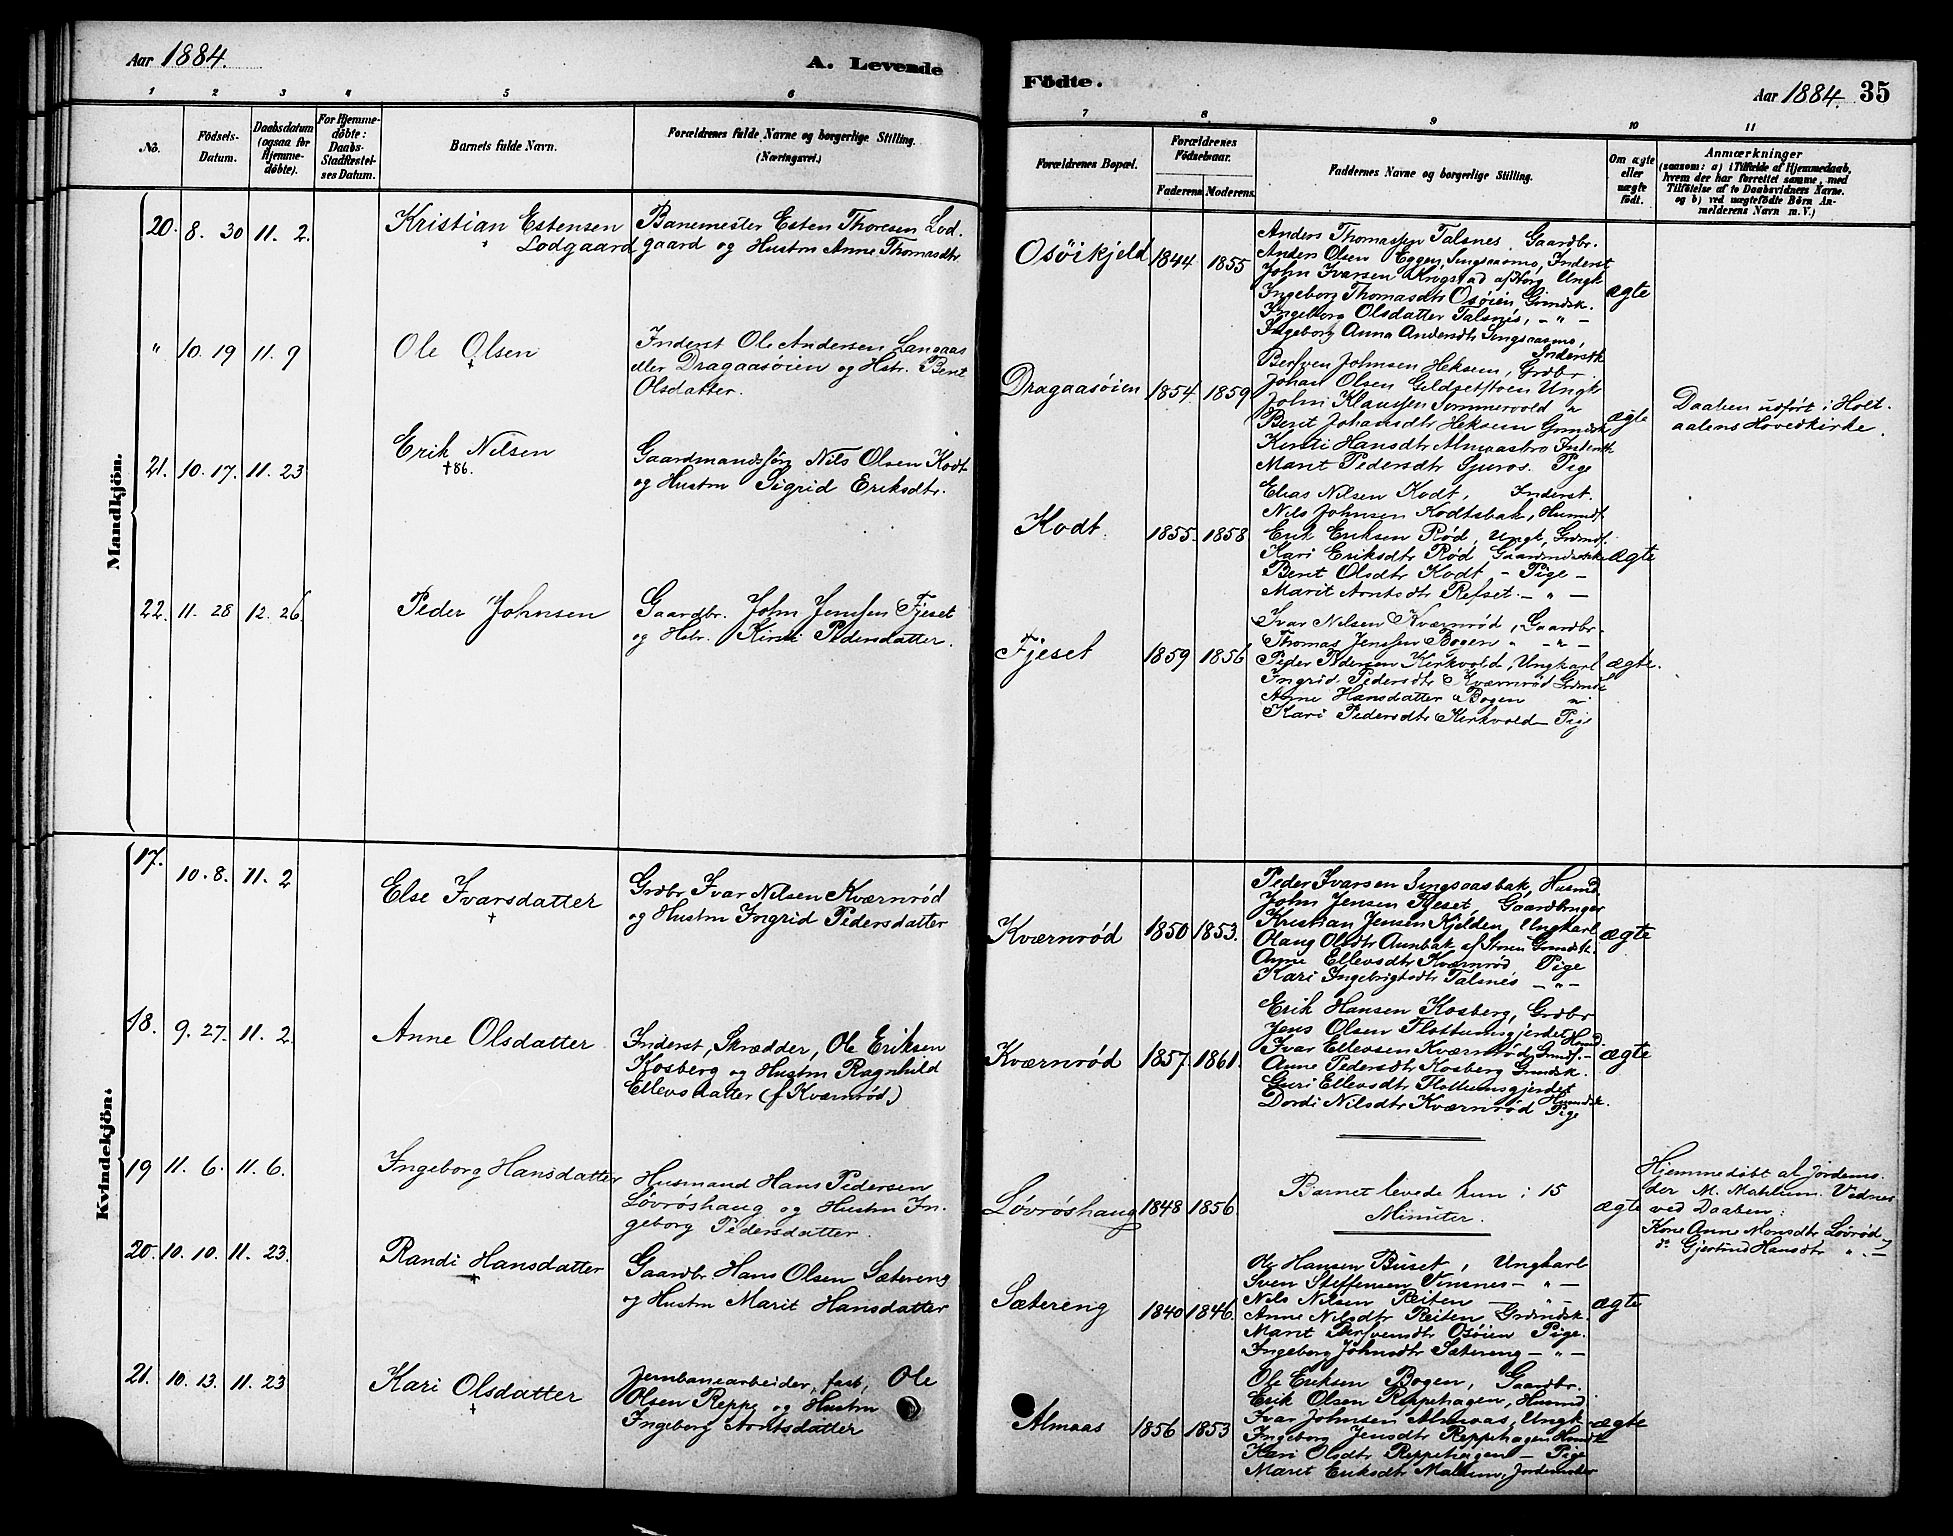 Aar 1884.
A. Levende
1 2 3 4 5 6
No.
Födsels-
Datum.
Daabsdatum
(ogsaa for
Hjemme-
döbte).
For Hjemme-
döbte:
Daabs-
Stadfæstel-
ses Datum.
Barnets fulde Navn.
Forældrenes fulde Navne og borgerlige Stilling.
(Næringsvei.)
Mandkjön.
20. 8. 30 11. 2.
Kristian Estensen
Lodgaard
Banemester Esten Thoresen Lod-
gaard og Hustru Anne Thomasdtr
" 10. 19 11. 9
Ole Olsen
+
Inderst Ole Andersen Langaas
eller Dragaasøien og Hstr. Berit
Olsdatter.
21. 10. 17. 11. 23
Erik Nilsen
+86.
Gaardmandssøn Nils Olsen Kodt
og Hustru Sigrid Eriksdtr.
22. 11. 28 12. 26
Peder Johnsen
Gaardbr. John Jenssen Fjeset
og Hstr. Kirsti Pedersdatter.
Kvindekjön:
17. 10. 8. 11. 2
Else Ivarsdatter
+
Grdbr Ivar Nilsen Kværnrød
og Hustru Ingrid Pedersdatter
18. 9. 27. 11. 2.
Anne Olsdatter
Inderst, Skrædder, Ole Eriksen
Kosberg og Hustru Ragnhild
Ellevsdatter (f Kværnrød)
19 11. 6. 11. 6.
Ingeborg Hansdatter
Husmand Hans Pedersen
Løvrøshaug og Hustru In-
geborg Pedersdatter.
20. 10. 10. 11. 23.
Randi Hansdatter
+
Gaardbr Hans Olsen Sætereng
og Hustru Marit Hansdatter
21. 10. 13. 11. 23
Kari Olsdatter
+
Jernbanearbeider, fast, Ole
Olsen Reppe og Hustru
Ingeborg Arntsdatter
Födte.
Aar 1884. 35
7 8 9 10 11
Forældrenes Bopæl.
Forældrenes
Födselsaar.
Faderens. Moderens.
Faddernes Navne og borgerlige Stilling.
Om ægte
eller
uægte
födt.
Anmærkninger
(saasom: a) i Tilfælde af Hjemmedaab,
hvem der har forrettet samme, med
Tilföielse af to Daabsvidners Navne,
og b) ved uægtefödte Börn An-
melderens Navn m. V.)
Osøikjeld 1844 1855
Anders Thomassen Talsnes, Gaardbr.
Anders Olsen Eggen, Singsaasmo, Inderst
John Ivarsen Krigstad af Horg Ungk
Ingeborg Thomasdtr Osøien Grmdsk.
Ingeborg Olsdatter Talsnes, - " -
Ingeborg Anna Andersdtr Singsaasmo,
Inderstk
ægte
Dragaasøien 1854 1859
Johnsen Heksem, Grdbr.
Johan Olsen Ungk
John Klaussen Sommervold "
Berit Johansdtr Heksem Grmdsk
Kirsti Hansdtr Almaasbro Inderstk
Marit Pedersdtr Gjuros. Pige
ægte
Daaben udført i Holt-
aalens Hovedkirke.
Kodt. 1855. 1858
Elias Nilsen Kodt, Inderst.
Nils Johnsen Kodtsbak, Husmd.
Erik Eriksen Rød, Ungk, Grdmds.
Kari Eriksdtr Rød, Gaardmdsk
Berit Olsdtr Kodt - Pige -
Marit Arntsdtr Refset. - " -
ægte
Fjeset 1859 1856
Ivar Nilsen Kværnrød, Gaardbr.
Thomas Jenssen Bogen " - " -
Peder Pedersen Kirkvold, Ungkarl
Ingrid Pedersdtr Kværnrød Grdmdsk
Anne Hansdatter Bogen "
Kari Pedersdtr Kirkvold - Pige
ægte.
Kværnrød 1850 1853.
Peder Ivarsen Singsaasbak, Husmd
John Jensen Fjeset, Gaardbruger
Kristian Jensen Kjelden, Ungkarl
Olaug Olsdtr Aunbak af Støren Grmdsk.
Anne Ellevsdtr Kværnrød Pige
Kari Ingebrigtsdtr Talsnes - " -
ægte
Kværnrød 1857. 1861.
Erik Hansen Kosberg, Grdbr
Jens Olsen Flottumsgjerdet, Husmd.
Ivar Ellevsen Kværnrød, Grmds. -
Anne Pedersdtr Kosberg Grmdsk.
Guri Ellevsdtr Flottumsgjerdet
Husmdsk.
Dordi Nilsdtr Kværnrød Pige
ægte
Løvrøshaug 1848 1856.
Barnet levede kun i 15
Minuter.
ægte
Hjemmedøbt af Jordemo-
der M. Mahlum. Vidnes
ved Daaben:
Kone Anne Monsdtr Løvrød
do Gjertrud Hansdtr " -
Sætereng 1840 1846.
Ole Hansen Buset, Ungkarl
Sven Steffensen Vinsnes - " -
Nils Nilsen Reiten - " -
Anne Nilsdtr Reiten - Grdmdsk.
Marit Bersvendtr Osøien Pige.
Ingeborg Johnsdtr Sætereng - " -
ægte
Almaas 1856 1853
Ole Eriksen Bogen, Gaardbr.
Erik Olsen Reppehagen, Husmd
Ivar Johnsen Almaas, Ungk -
Ingeborg Jensdtr Reppehagen Husmdsk
Kari Olsdtr Reppehagen - Pige
Marit Eriksdtr Mahlum, Jordemoder
ægte